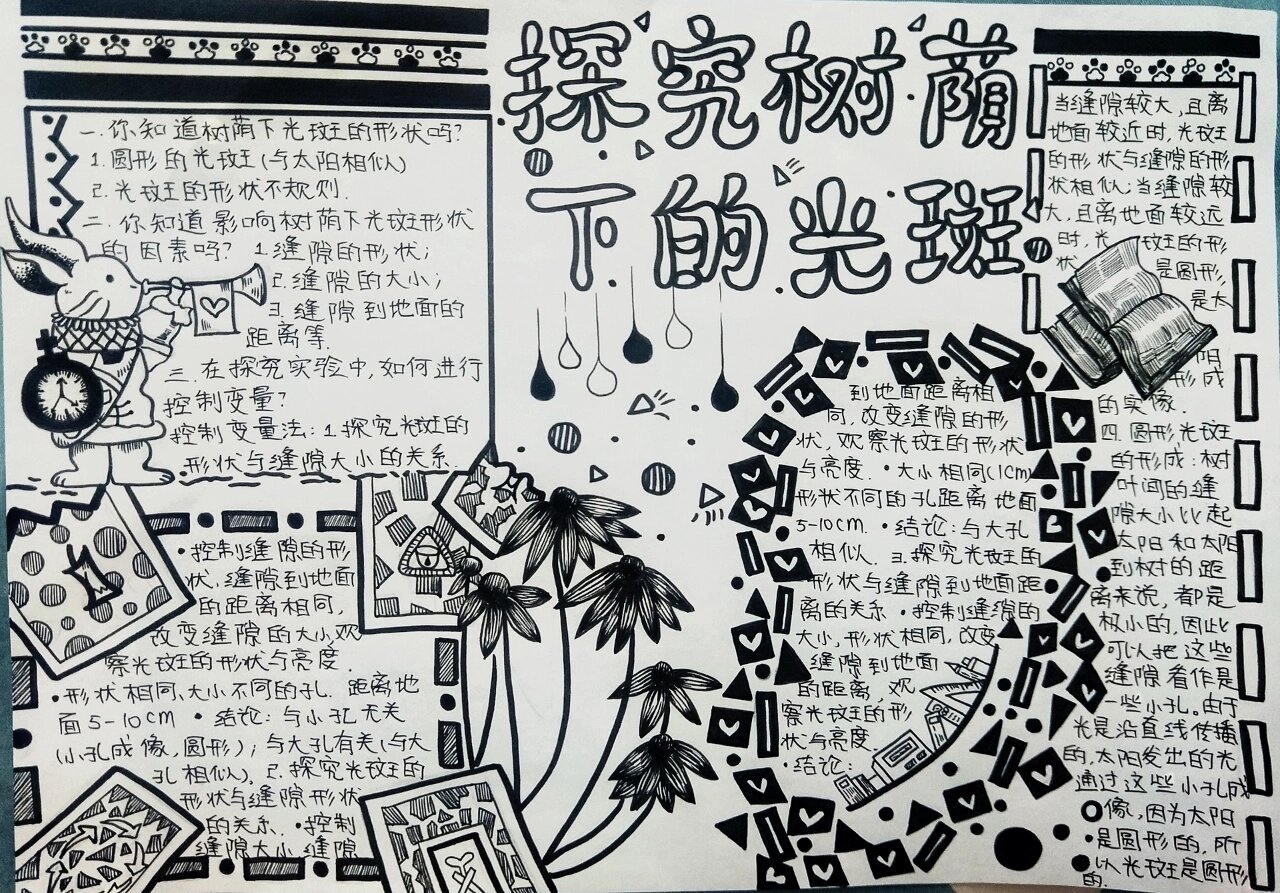 探究树荫
下的光斑
一.你知道树荫下光斑的形状吗?
1.圆形的光斑(与太阳相似)
2.光斑的形状不规则.
二.你知道影响树荫下光斑形状
的因素吗? 1.缝隙的形状;
2.缝隙的大小;
3.缝隙到地面的
距离等.
三.在探究实验中,如何进行
控制变量?
控制变量法:1.探究光斑的
形状与缝隙大小的关系.
·控制缝隙的形
状,缝隙到地面
的距离相同,
改变缝隙的大小,观
察光斑的形状与亮度.
·形状相同,大小不同的孔.距离地
面5-10cm ·结论:与小孔无关
(小孔成像,圆形);与大孔有关(与大
孔相似).2.探究光斑的
形状与缝隙形状
的关系.·控制
缝隙大小.缝隙
到地面距离相
同,改变缝隙的形
状,观察光斑的形状
与亮度.·大小相同(1cm)
形状不同的孔距离地面
5-10cm.·结论:与大孔
相似.3.探究光斑的
形状与缝隙到地面距
离的关系.·控制缝隙的
大小,形状相同,改变
缝隙到地面
的距离,观
察光斑的形
状与亮度.
·结论:
当缝隙较大,且离
地面较近时,光斑
的形状与缝隙的形
状相似;当缝隙较
大,且离地面较远
时,光斑的形
状是圆形,
是太
阳
形成
的实像.
四.圆形光斑
的形成:树
叶间的缝
隙大小比起
太阳和太阳
到树的距
离来说,都是
极小的,因此
可以把这些
缝隙看作是
一些小孔。由于
光是沿直线传播
的,太阳发出的光
通过这些小孔成
像,因为太阳
是圆形的,所
以光斑是圆形
的.